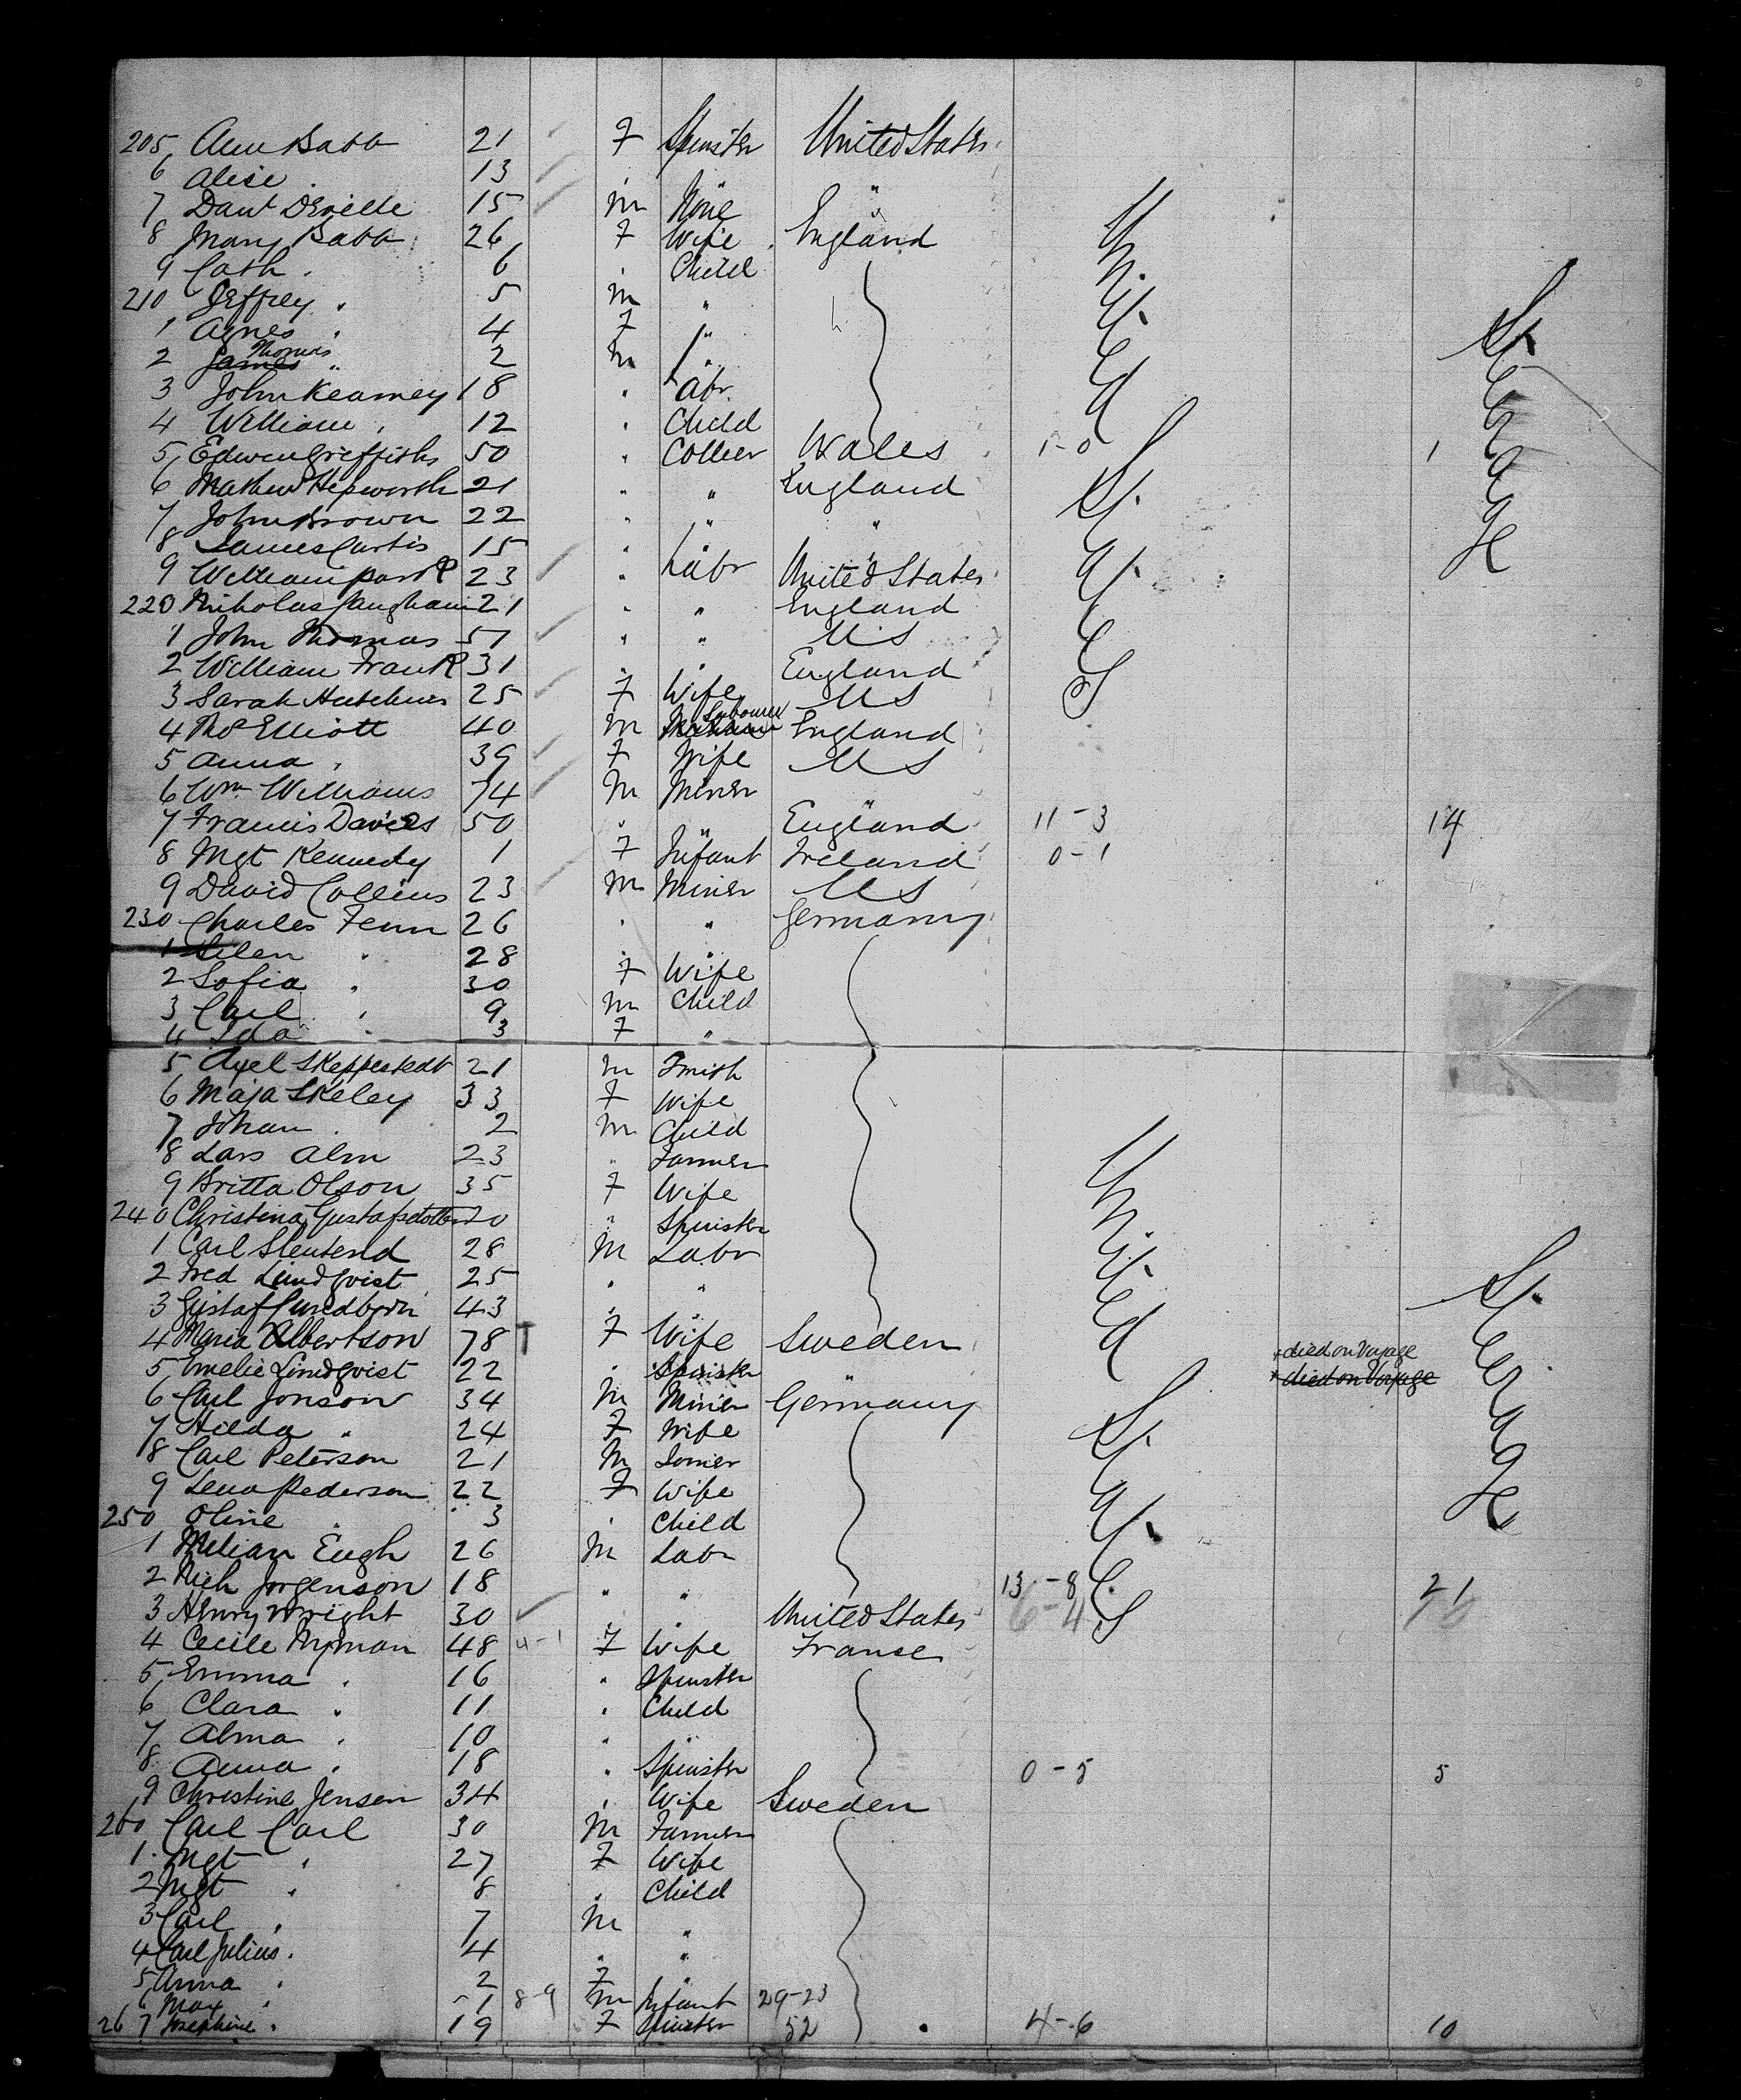 205 Ann Babb 21 F Spinster United States
6 Alice " 13 " "
7 Danl 15 M None "
8 Mary Babb 26 F Wife England
9 Cath " 6 " Child
210 Jeffrey " 5 M "
1 Agnes " 4 F "
2 James Thomas " 2 M "
3 John Kearney 18 " Labr
4 William " 12 " Child
5 Edwin Griffiths 50 " Collier Wales 1-0 1
6 Mathew Hepworth 21 " " England
7 John Brown 22 " " "
8 James Curtis 15 " "
9 William Park 23 " Labr United States
220 Nicholas 21 " " England
1 John Thomas 57 " " U S
2 William Frank 31 " " England
3 Sarah Hutchins 25 F Wife U S
4 Thos Elliott 40 M Labourer England
5 Anna " 39 F Wife U S
6 Wm Williams 74 M Miner "
7 Francis Davies 50 " " England 11-3 14
8 Mgt Kennedy 1 F Infant Ireland 0-1
9 David Collins 23 M Miner U S
230 Charles Fenn 26 " " Germany
1 Helen " 28 " "
2 Sofia " 30 F Wife
3 Carl " 9 M Child
4 Ida " 3 F "
5 Axel Skeppestedt 21 M Smith
6 Maja Skeley 33 F Wife
7 Johan " 2 M Child
8 Lars Alm 23 " Farmer
9 Britta Olson 35 F Wife
240 Christina Gustafsdotter 20 " Spinster
1 Carl 28 M Labr
2 Fred Lindqvist 25 " "
3 Gustaf Lundborn 43 " "
4 Maria Albertson 78 F Wife Sweden + died on Voyage
5 Emelie Lindqvist 22 " Spinster " + died on Voyage
6 Carl Jonson 34 M Miner Germany
7 Hilda " 24 F Wife
8 Carl Peterson 21 M Joiner
9 Lena Pederson 22 F Wife
250 Oline " 3 " Child
1 26 M Labr
2 Nich Jorgenson 18 " " 13-8 21
3 Henry Wright 30 " " United States 6-4
4 Cecile Nyman 48 4-1 F Wife Franse
5 Emma " 16 " Spinster
6 Clara " 11 " Child
7 Alma " 10 " "
8 Anna " 18 " Spinster 0-5 5
9 Christine Jensen 34 " Wife Sweden
260 Carl Carl 30 M Farmer
1 Mgt " 27 F Wife
2 Mgt " 8 " Child
3 Carl " 7 M "
4 Carl Julius " 4 " "
5 Anna " 2 F "
6 Max " 1 8-9 M Infant 29-23
267 Josephine " 19 F Spinster 52 4-6 10